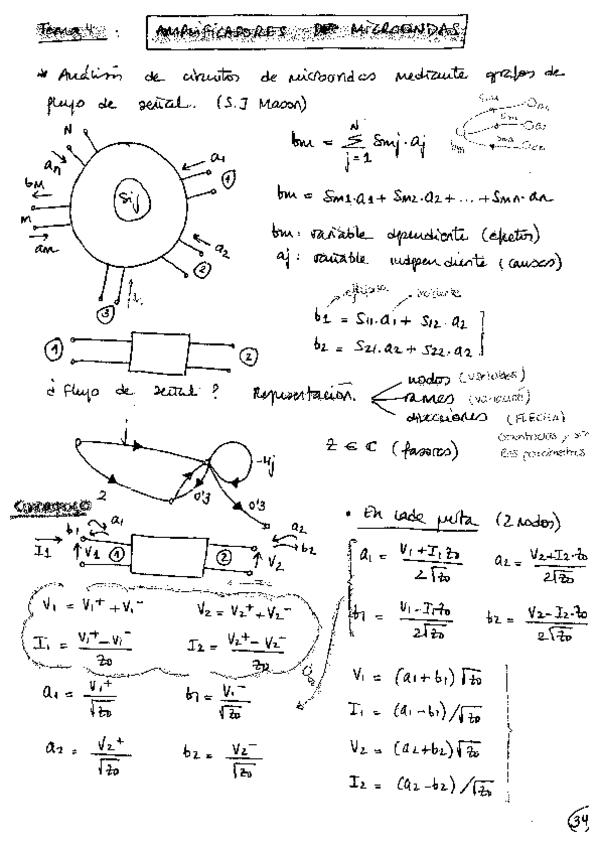 Tema 4 : AMPLIFICADORES DE MICROONDAS
* Análisis de circuitos de microondas mediante grafos de
flujo de señal. (S.J Mason)
N
an
bm
M
am
Sij
a1
1
a2
2
3
bm = Σ Smj·aj
N
j=1
bm = Sm1·a1 + Sm2·a2 + ... + Smn·an
bm: variable dependiente (efectos)
aj: variable independiente (causas)
b1 = S11·a1 + S12·a2
b2 = S21·a2 + S22·a2
1
2
¿Flujo de señal? Representación.
nodos (variables)
ramas
direcciones (FLECHA)
Z ∈ C (fasores)
-4j
2
0'3
0'3
b1 a1
I1 V1 1 2 V2
a2
b2
V1 = V1+ + V1- V2 = V2+ + V2-
I1 = (V1+ - V1-)/Z0 I2 = (V2+ - V2-)/Z0
a1 = V1+/√Z0 b1 = V1-/√Z0
a2 = V2+/√Z0 b2 = V2-/√Z0
• En cada puerta (2 nodos)
a1 = (V1+I1·Z0)/2√Z0 a2 = (V2+I2·Z0)/2√Z0
b1 = (V1-I1·Z0)/2√Z0 b2 = (V2-I2·Z0)/2√Z0
V1 = (a1+b1)√Z0
I1 = (a1-b1)/√Z0
V2 = (a2+b2)√Z0
I2 = (a2-b2)/√Z0
34